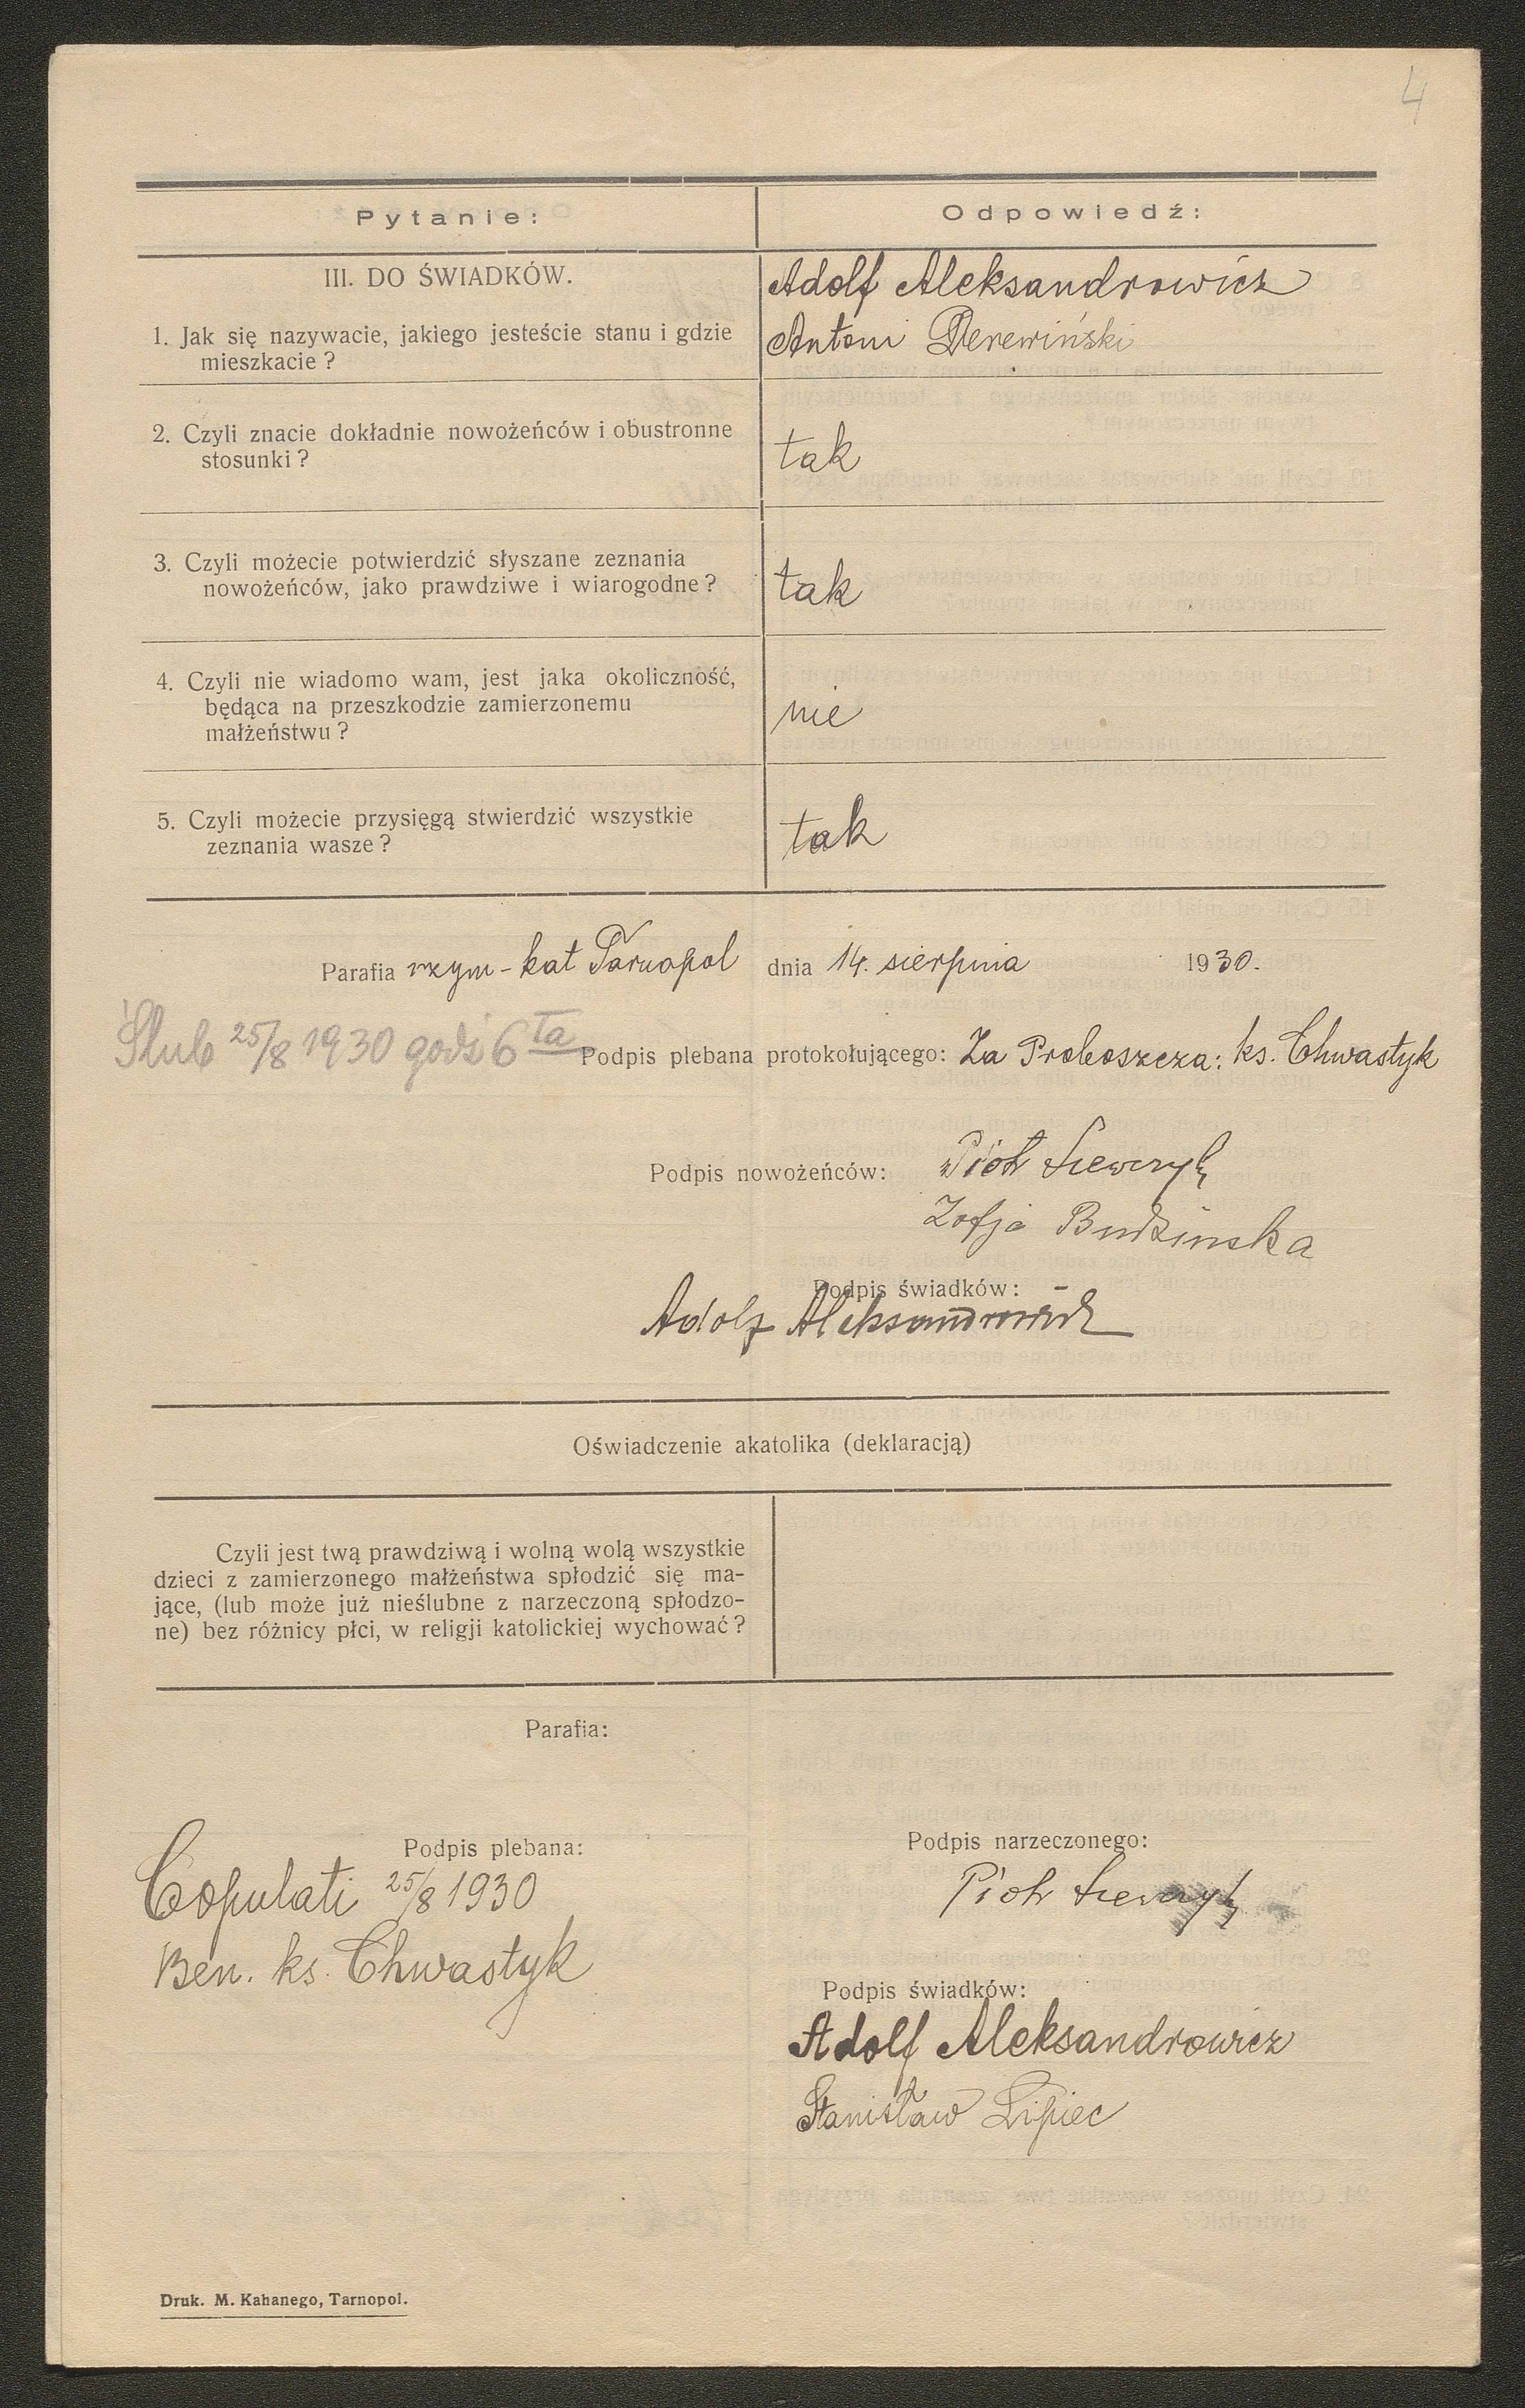 4
Pytanie:
Odpowiedź:
III. DO ŚWIADKÓW.
1. Jak się nazywacie, jakiego jesteście stanu i gdzie
mieszkacie?
Adolf Aleksandrowicz
Antoni Derewiński
2. Czyli znacie dokładnie nowożeńców i obustronne
stosunki?
tak
3. Czyli możecie potwierdzić słyszane zeznania
nowożeńców, jako prawdziwe i wiarogodne?
tak
4. Czyli nie wiadomo wam, jest jaka okoliczność,
będąca na przeszkodzie zamierzonemu
małżeństwu?
nie
5. Czyli możecie przysięgą stwierdzić wszystkie
zeznania wasze?
tak
Parafia rzym-kat Tarnopol dnia 14. sierpnia 1930.
Ślub 25/8 1930 godz 6ta
Podpis plebana protokołującego: Za Proboszcza: ks. Chwastyk
Podpis nowożeńców: Piotr
Zofja Budzinska
Podpis świadków:
Adolf Aleksandrowicz
Oświadczenie akatolika (deklaracją)
Czyli jest twą prawdziwą i wolną wolą wszystkie
dzieci z zamierzonego małżeństwa spłodzić się ma-
jące, (lub może już nieślubne z narzeczoną spłodzo-
ne) bez różnicy płci, w religji katolickiej wychować?
Parafia:
Podpis plebana:
Copulati 25/8 1930
Ben. ks. Chwastyk
Podpis narzeczonego:
Piotr
Podpis świadków:
Adolf Aleksandrowicz
Stanisław Lipiec
Druk. M. Kahanego, Tarnopol.